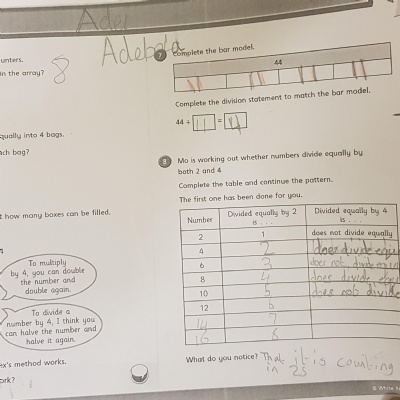 Ade
Adebola
unters.
in the array? 8
qually into 4 bags.
ach bag?
t how many boxes can be filled.
To multiply
by 4, you can double
the number and
double again.
To divide a
number by 4, I think you
can halve the number and
halve it again.
ex's method works.
ork?
7 Complete the bar model.
44
11 11 11 11
Complete the division statement to match the bar model.
44 ÷ 11 = 4
8 Mo is working out whether numbers divide equally by
both 2 and 4
Complete the table and continue the pattern.
The first one has been done for you.
Number Divided equally by 2 is . . . Divided equally by 4 is . . .
2 1 does not divide equally
4 2 does divide equ
6 3 does not divide equal
8 4 does divide equ
10 5 does not divide
12 6
14 7
16 8
What do you notice? That it is counting
in 2s
© White R